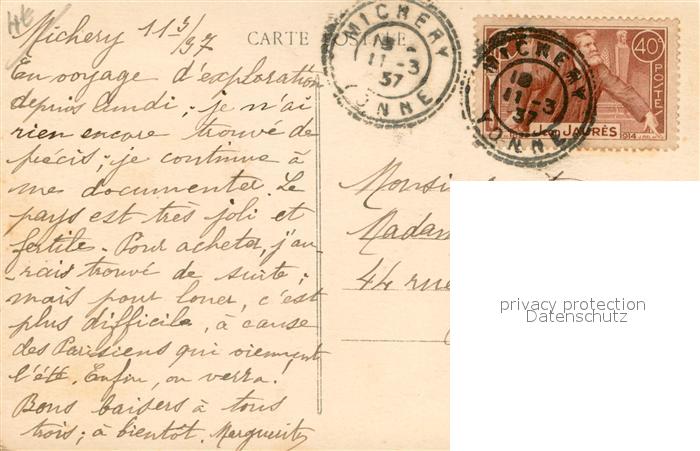 Michery 11 3/37
CARTE POSTALE
En voyage d'exploration
depuis lundi; je n'ai
rien encore trouvé de
précis; je continue à
me documenter. Le
pays est très joli et
fertile. Pour acheter, j'au-
-rais trouvé de suite;
mais pour louer, c'est
plus difficile, à cause
des Parisiens qui viennent
l'été. Enfin, on verra.
Bons baisers à tous
trois; à bientôt. Marguerite
MICHERY
11-3
37
YONNE
MICHERY
18
11-3
37
YONNE
40c
POSTE
JEAN JAURÈS
1914
Monsieur et
Madam
44 rue
privacy protection
Datenschutz